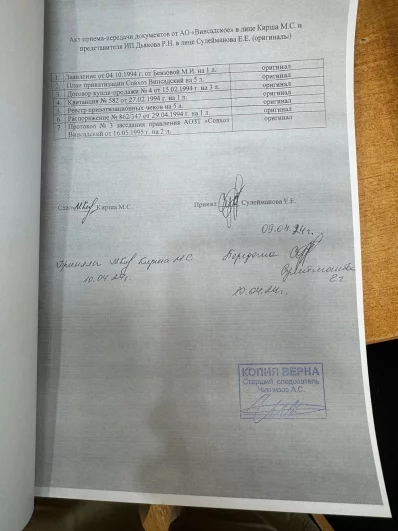 Акт приема-передачи документов от АО «Винсадское» в лице Кирша М.С. и
представителя ИП Дьякова Р.Н. в лице Сулеймановa Е.Е. (оригиналы)
1. Заявление от 04.10.1994 г. от Беизовой М.И. на 1 л. оригинал
2. План приватизации Совхоз Винсадский на 5 л. оригинал
3. Договор купли-продажи № 4 от 15.02.1994 г. на 3 л. оригинал
4. Квитанция № 582 от 27.02.1994 г. на 1 л. оригинал
5. Реестр приватизационных чеков на 5 л. оригинал
6. Распоряжение № 862/347 от 29.04.1994 г. на 1 л. оригинал
7. Протокол № 3 заседания правления АОЗТ «Совхоз оригинал
Винсадский от 16.05.1995 г. на 2 л.
Сдал Кирша М.С. Принял Сулейманова Е.Е.
09.04.24г.
Приняла Кирша М.С. Передала
10.04.24г. Сулейманова
Е.Е.
10.04.24г.
КОПИЯ ВЕРНА
Старший следователь